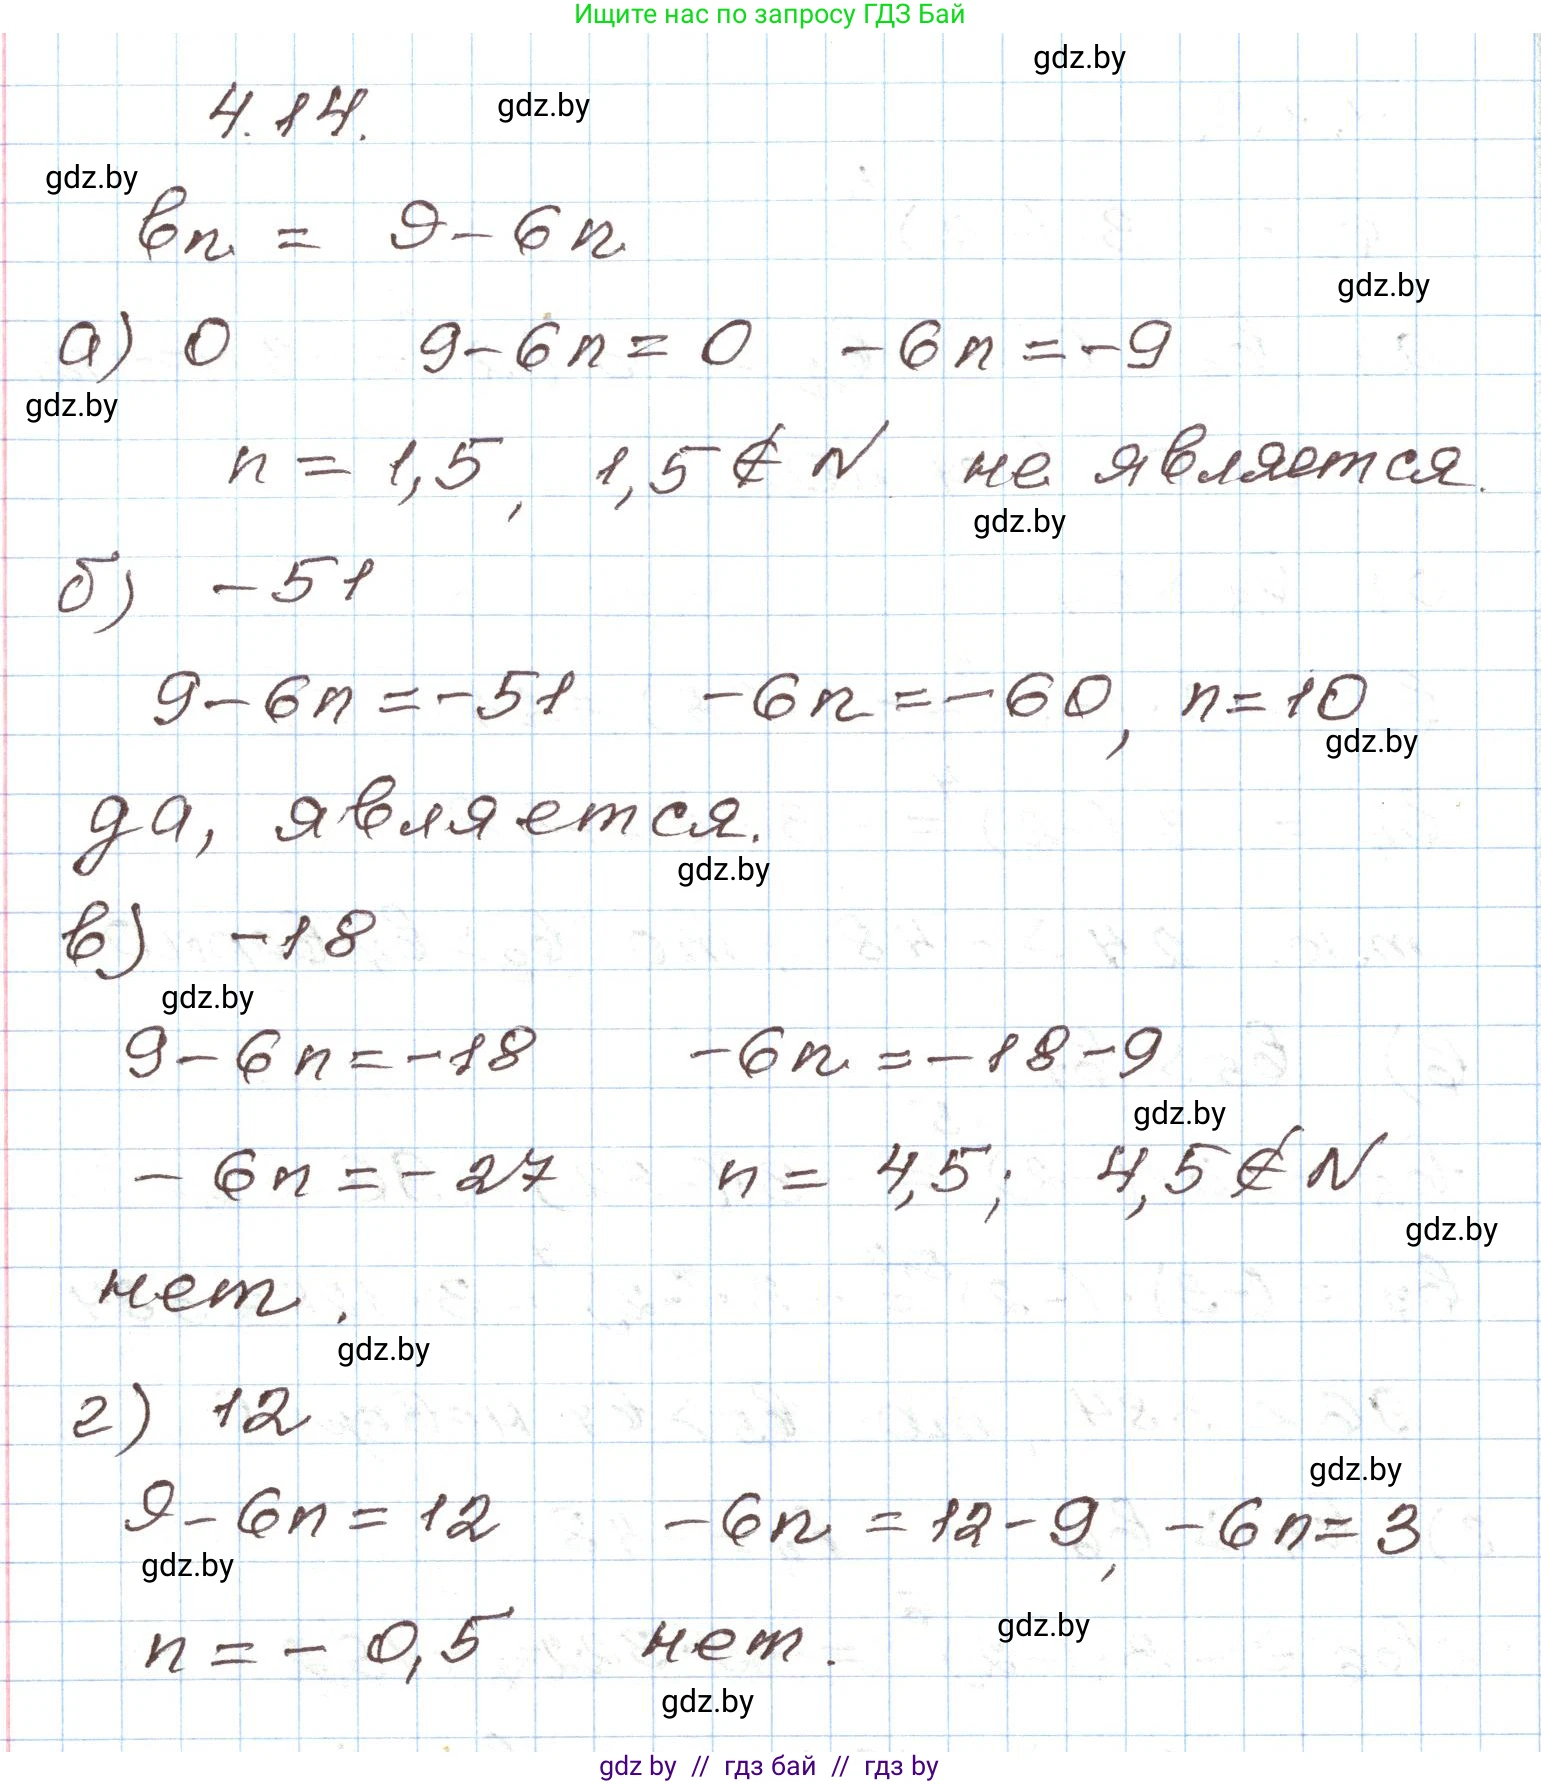 Ищите нас по запросу ГДЗ Бай
gdz.by
4.14.
gdz.by
gdz.by
bn = 9-6n
gdz.by
а) 0 9-6n=0 -6n=-9
gdz.by
n=1,5, 1,5∉N не является.
gdz.by
б) -51
9-6n=-51 -6n=-60, n=10
gdz.by
да, является.
gdz.by
в) -18
gdz.by
9-6n=-18 -6n=-18-9
gdz.by
-6n=-27 n=4,5; 4,5∉N
gdz.by
нет.
gdz.by
г) 12
gdz.by
9-6n=12 -6n=12-9, -6n=3
gdz.by
n=-0,5 нет.
gdz.by
gdz.by
gdz by // гдз бай // гдз by